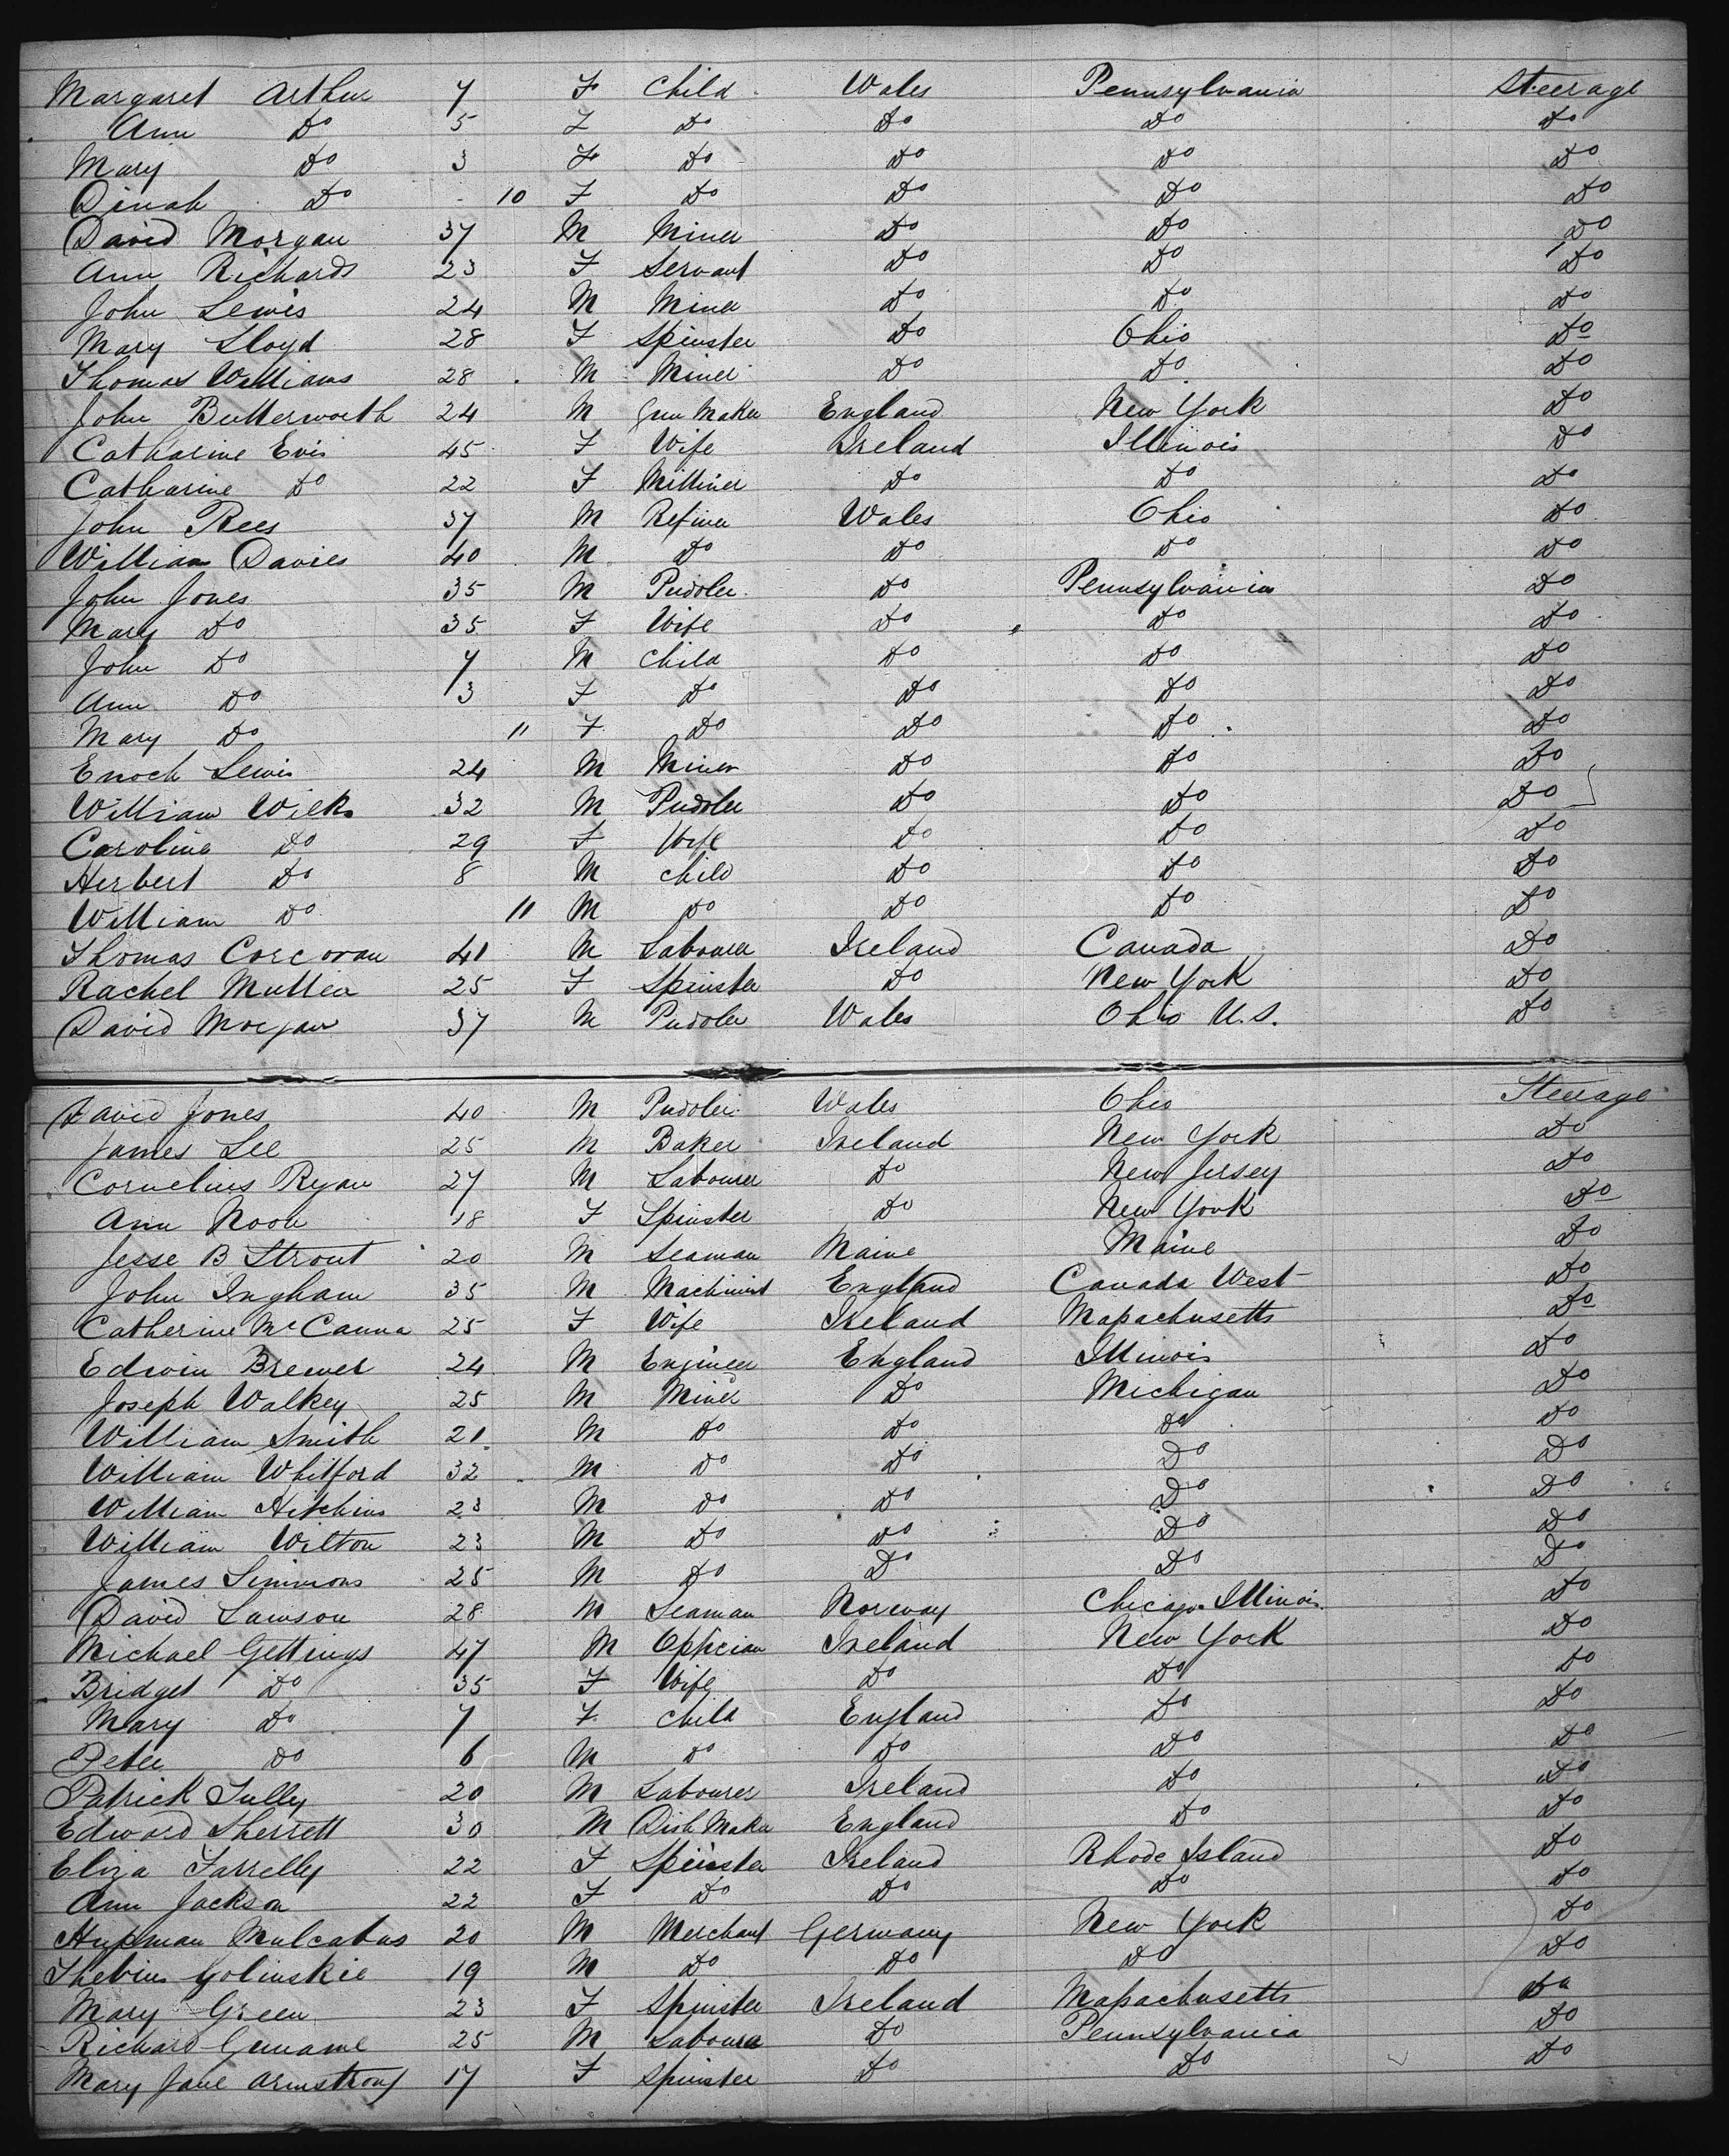 Margaret Arthur 7 F Child Wales Pennsylvania Steerage
Ann Do 5 F Do Do Do Do
Mary Do 3 F Do Do Do Do
Dinah Do 10 F Do Do Do Do
David Morgan 37 M Miner Do Do Do
Ann Richards 23 F Servant Do Do Do
John Lewis 24 M Miner Do Do Do
Mary Lloyd 28 F Spinster Do Ohio Do
Thomas Williams 28 M Miner Do Do Do
John Butterworth 24 M Gun Maker England New York Do
Catharine Evis 45 F Wife Ireland Illinois Do
Catharine Do 22 F Milliner Do Do Do
John Rees 37 M Refiner Wales Ohio Do
William Davies 40 M Do Do Do Do
John Jones 35 M Pudler Do Pennsylvania Do
Mary Do 35 F Wife Do Do Do
John Do 7 M Child Do Do Do
Ann Do 3 F Do Do Do Do
Mary Do 11 F Do Do Do Do
Enoch Lewis 24 M Miner Do Do Do
William Wilks 32 M Pudler Do Do Do
Caroline Do 29 F Wife Do Do Do
Herbert Do 8 M Child Do Do Do
William Do 11 M Do Do Do Do
Thomas Corcoran 41 M Labourer Ireland Canada Do
Rachel Mullen 25 F Spinster Do New York Do
David Morgan 37 M Pudler Wales Ohio U.S. Do
David Jones 40 M Pudler Wales Ohio Steerage
James Lee 25 M Baker Ireland New York Do
Cornelius Ryan 27 M Labourer Do New Jersey Do
Ann 18 F Spinster Do New York Do
Jesse B Strout 20 M Seaman Maine Maine Do
John Ingham 35 M Machinist England Canada West Do
Catherine McCanna 25 F Wife Ireland Massachusetts Do
Edwin Brewer 24 M Engineer England Illinois Do
Joseph Walkey 25 M Miner Do Michigan Do
William Smith 21 M Do Do Do Do
William Whitford 32 M Do Do Do Do
William Hitchins 23 M Do Do Do Do
William Wilton 23 M Do Do Do Do
James Simmons 25 M Do Do Do Do
David Lawson 28 M Seaman Norway Chicago Illinois Do
Michael Gettings 47 M Optician Ireland New York Do
Bridget Do 35 F Wife Do Do Do
Mary Do 7 F Child England Do Do
Peter Do 6 M Do Do Do Do
Patrick Tully 20 M Labourer Ireland Do Do
Edward Sherrett 30 M Dish Maker England Do Do
Eliza Farrelly 22 F Spinster Ireland Rhode Island Do
Ann Jackson 22 F Do Do Do Do
20 M Merchant Germany New York Do
Golinskie 19 M Do Do Do Do
Mary Green 23 F Spinster Ireland Massachusetts Do
Richard 25 M Labourer Do Pennsylvania Do
Mary Jane Armstrong 17 F Spinster Do Do Do